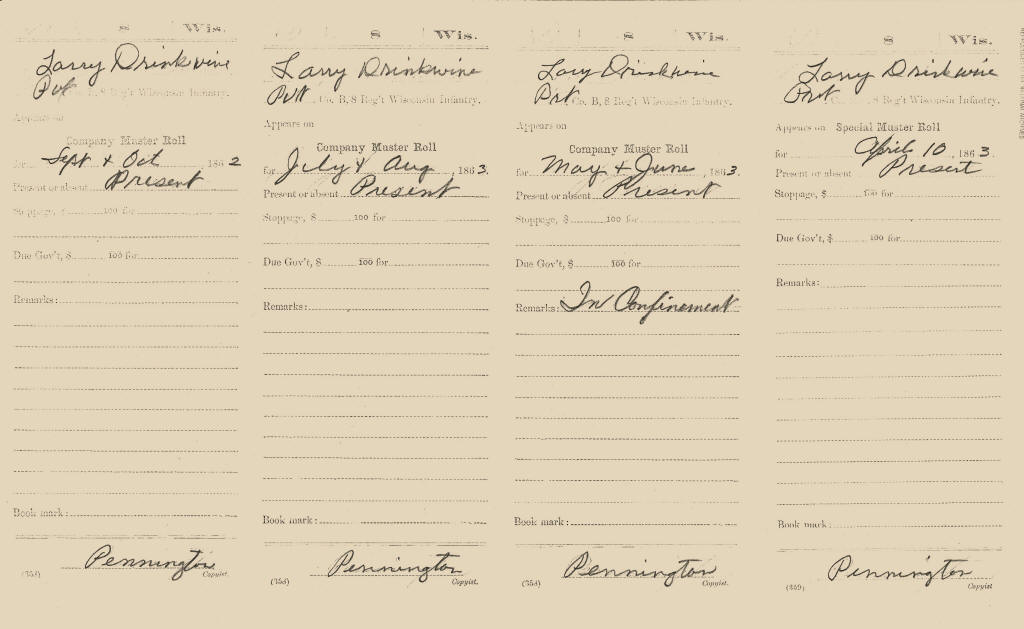 8 Wis.
Larry Drinkwine
Pvt Co. B, 8 Reg't Wisconsin Infantry.
Appears on
Company Muster Roll
for Sept & Oct, 1862
Present or absent Present
Stoppage, $ 100 for
Due Gov't, $ 100 for
Remarks:
Book mark:
Pennington
(358) Copyist.
8 Wis.
Larry Drinkwine
Pvt Co. B, 8 Reg't Wisconsin Infantry.
Appears on
Company Muster Roll
for July & Aug, 1863.
Present or absent Present
Stoppage, $ 100 for
Due Gov't, $ 100 for
Remarks:
Book mark:
Pennington
(358) Copyist.
8 Wis.
Lary Drinkwine
Pvt Co. B, 8 Reg't Wisconsin Infantry.
Appears on
Company Muster Roll
for May & June, 1863.
Present or absent Present
Stoppage, $ 100 for
Due Gov't, $ 100 for
Remarks: In Confinement
Book mark:
Pennington
(358) Copyist.
8 Wis.
Larry Drinkwine
Pvt Co. , 8 Reg't Wisconsin Infantry.
Appears on Special Muster Roll
for April 10, 1863.
Present or absent Present
Stoppage, $ 100 for
Due Gov't, $ 100 for
Remarks:
Book mark:
Pennington
(359) Copyist